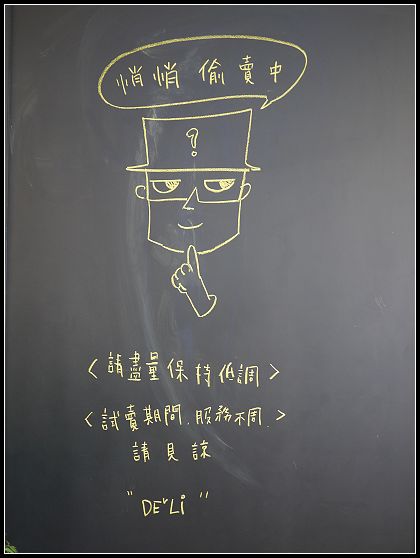 悄悄 偷賣中
?
<請盡量保持低調>
<試賣期間.服務不周.>
請見諒
"DEˇLi"